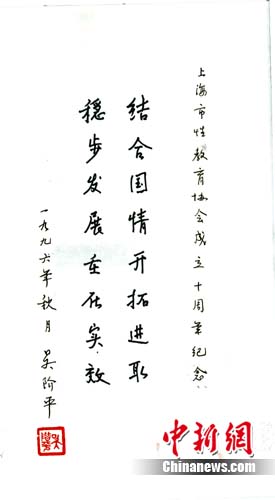 上海市性教育协会成立十周年纪念
结合国情开拓进取
稳步发展重在实效
一九九六年秋月 吴阶平
中新網
Chinanews.com